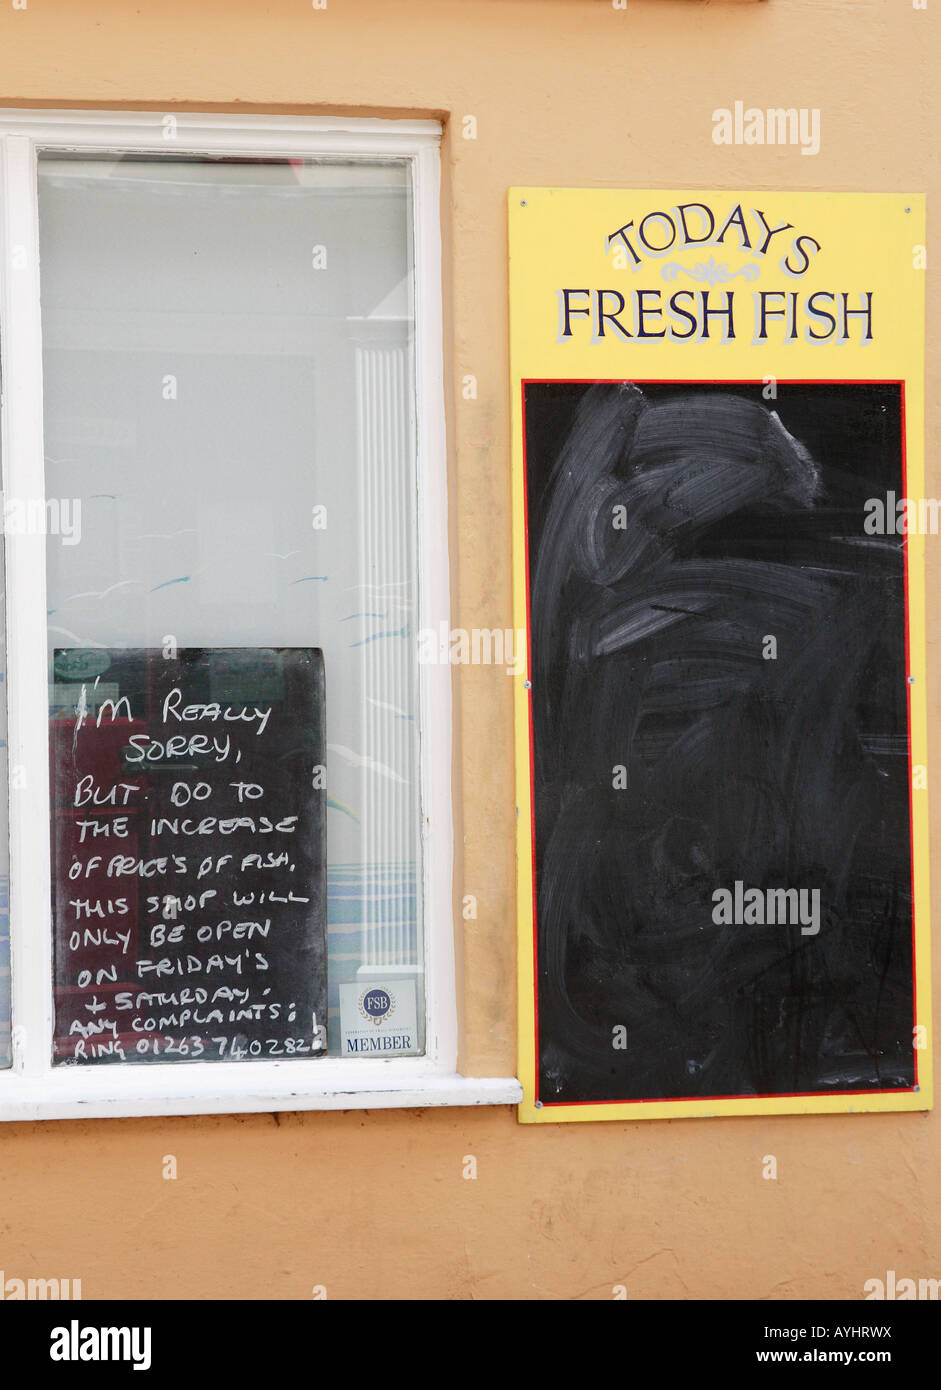 TODAYS
FRESH FISH
I'M REALLY
SORRY,
BUT. DO TO
THE INCREASE
OF PRICE'S OF FISH.
THIS SHOP WILL
ONLY BE OPEN
ON FRIDAY'S
+ SATURDAY.
ANY COMPLAINTS:
RING 01263 740282!
FSB
MEMBER
alamy
alamy
www.alamy.com
Image ID: AYHRWX